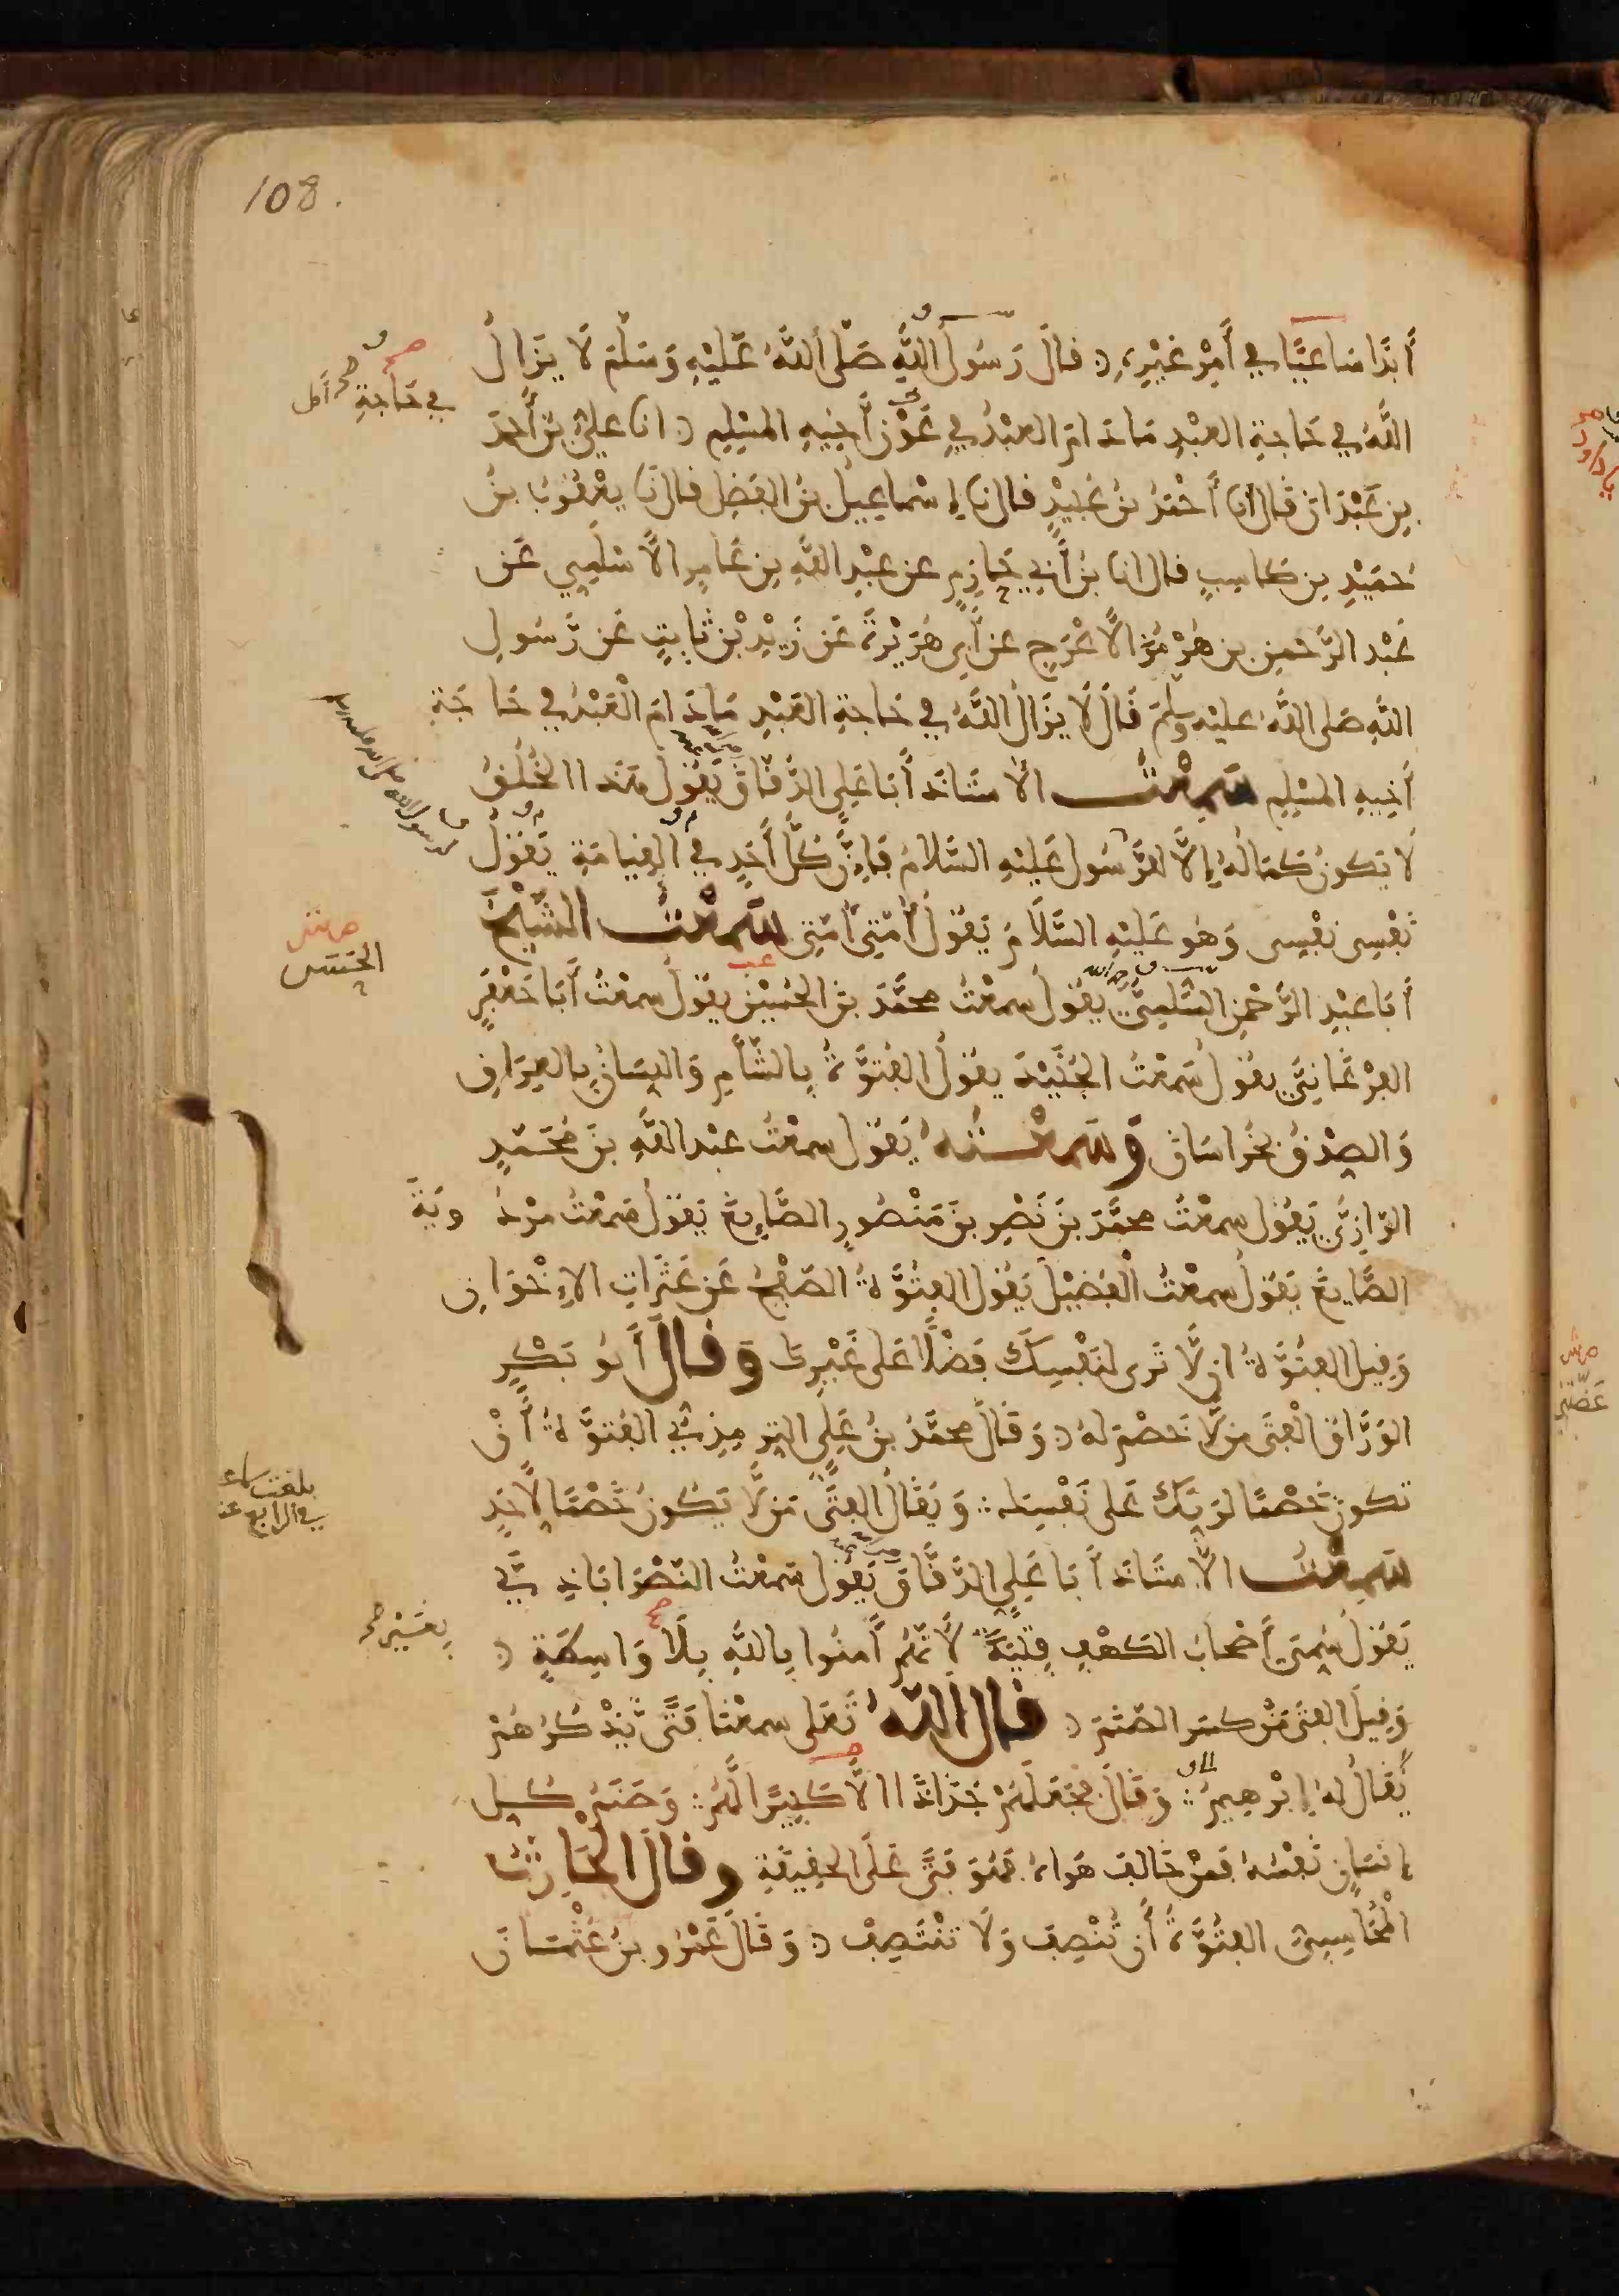 108.
أَبَدًا سَاعِيًا فِي أَمْرِ غَيْرِهِ قَالَ رَسُولُ اللَّهِ صَلَّى اللَّهُ عَلَيْهِ وَسَلَّمَ لَا يَزَالُ
اللَّهُ فِي حَاجَةِ العَبْدِ مَا دَامَ العَبْدُ فِي عَوْنِ أَخِيهِ المُسْلِمِ انا عَلِيُّ بْنُ أَحْمَدَ
في حاجة
بنِ عَبْدَانَ قَالَ انا أَحْمَدُ بْنُ عُبَيْدٍ قال نا إِسْمَاعِيلُ بْنُ الفَضْلِ قال نا يَعْقُوبُ بنُ
حُمَيْدِ بنِ كَاسِبٍ قال انا بْنُ أَبِي حَازِمٍ عن عَبْدِ اللَّهِ بنِ عَامِرٍ الأَسْلَمِيِّ عَن
عَبْدِ الرَّحْمنِ بن هُرْمُزَ الأَعْرَجِ عن أَبِي هُرَيْرَةَ عَن زَيْدِ بْنِ ثَابِتٍ عَن رَّسُولِ
اللَّهِ صَلى اللَّهُ عليْهِ وَسَلَّمَ قَالَ لَا يَزَالُ اللَّهُ فِي حَاجَةِ العَبْدِ مَا دَامَ الْعَبْدُ فِي حَاجَةِ
أَخِيهِ المُسْلِمِ سَمِعْتُ الأُسْتَاذَ أَبَا عَلِيٍّ الدَّقَّاقَ يَقُولُ هَذَا الخُلُقُ
لَا يَكُونُ كَمَالُهُ إِلَّا لِلرَّسُولِ عَلَيْهِ السَّلَامُ فَإِنَّ كُلَّ أَحَدٍ فِي القِيَامَةِ يَقُولُ
نَفْسِي نَفْسِي وَهُوَ عَلَيْهِ السَّلَامُ يَقُولُ أُمَّتِي أُمَّتِي سَمِعْتُ الشَّيْخَ
أَبَا عَبْدِ الرَّحْمنِ السُّلَمِيَّ يَقُولُ سَمِعْتُ مُحَمَّدَ بْنَ الحُسَيْنِ يَقُولُ سَمِعْتُ أَبَا جَعْفَرٍ
الفَرْغَانِيَّ يَقُولُ سَمِعْتُ الجُنَيْدَ يَقُولُ الفُتُوَّةُ بِالشَّأْمِ وَاللِّسَانُ بِالعِرَاقِ
وَالصِّدْقُ بِخُرَاسَانَ وَسَمِعْتُهُ يَقُولُ سَمِعْتُ عَبْدَ اللَّهِ بْنَ مُحَمَّدٍ
الرَّازِيَّ يَقُولُ سَمِعْتُ مُحَمَّدَ بْنَ نَصْرِ بنِ مَنْصُورٍ الصَّايِغَ يَقُولُ سَمِعْتُ مَرْدُويَةَ
الصَّايِغَ يَقُولُ سَمِعْتُ الْفُضَيْلَ يَقُولُ الفُتُوَّةُ الصَّفْحُ عَن عَثَرَاتِ الإِخْوَانِ
وَقِيلَ الفُتُوَّةُ ان لَّا تَرى لِنَفْسِكَ فَضْلًا عَلى غَيْرِكَ وَقَالَ أَبُو بَكْرٍ
الوَرَّاقُ الْفَتَى مَن لَّا خَصْمَ لَهُ وَقَالَ مُحَمَّدُ بْنُ عَلِيٍّ التِّرْمِذِيُّ الفُتُوَّةُ أَنْ
تَكُونَ خَصْمًا لِرَبِّكَ عَلى نَفْسِكَ وَيُقَالُ الفَتَى مَن لَّا يَكُونُ خَصْمًا لِأَحَدٍ
سَمِعْتُ الأُسْتَاذَ أَبَا عَلِيٍّ الدَّقَّاقَ يَقُولُ سَمِعْتُ النَّصْرَابَاذِيَّ
يَقُولُ سُمِّيَ أَصْحَابُ الكَهْفِ فِتْيَةً لِأَنَّهُمْ آمَنُوا بِاللَّهِ بِلَا وَاسِطَةٍ
وَقِيلَ الفَتَى مَنْ كَسَرَ الصَّنَمَ قَالَ اللَّهُ تَعَلى سَمِعْنَا فَتًى يَّذْكُرُهُمْ
يُقَالُ لَهُ إِبْرَهِيمُ وَقَالَ فَجَعَلَهُمْ جُذَاذًا إِلَّا كَبِيرًا لَّهُمْ وَصَنَمُ كُلِّ
إِنسَانٍ نَفْسُهُ فَمَنْ خَالَفَ هَوَاهُ فَهُوَ فَتًى عَلَى الحَقِيقَةِ وَقَالَ الحَارِثُ
الْمُحَاسِبِيُّ الفُتُوَّةُ أَن تُنْصِفَ وَلَا تَنْتَصِفْ وَقَالَ عَمْرُو بنُ عُثْمَانَ